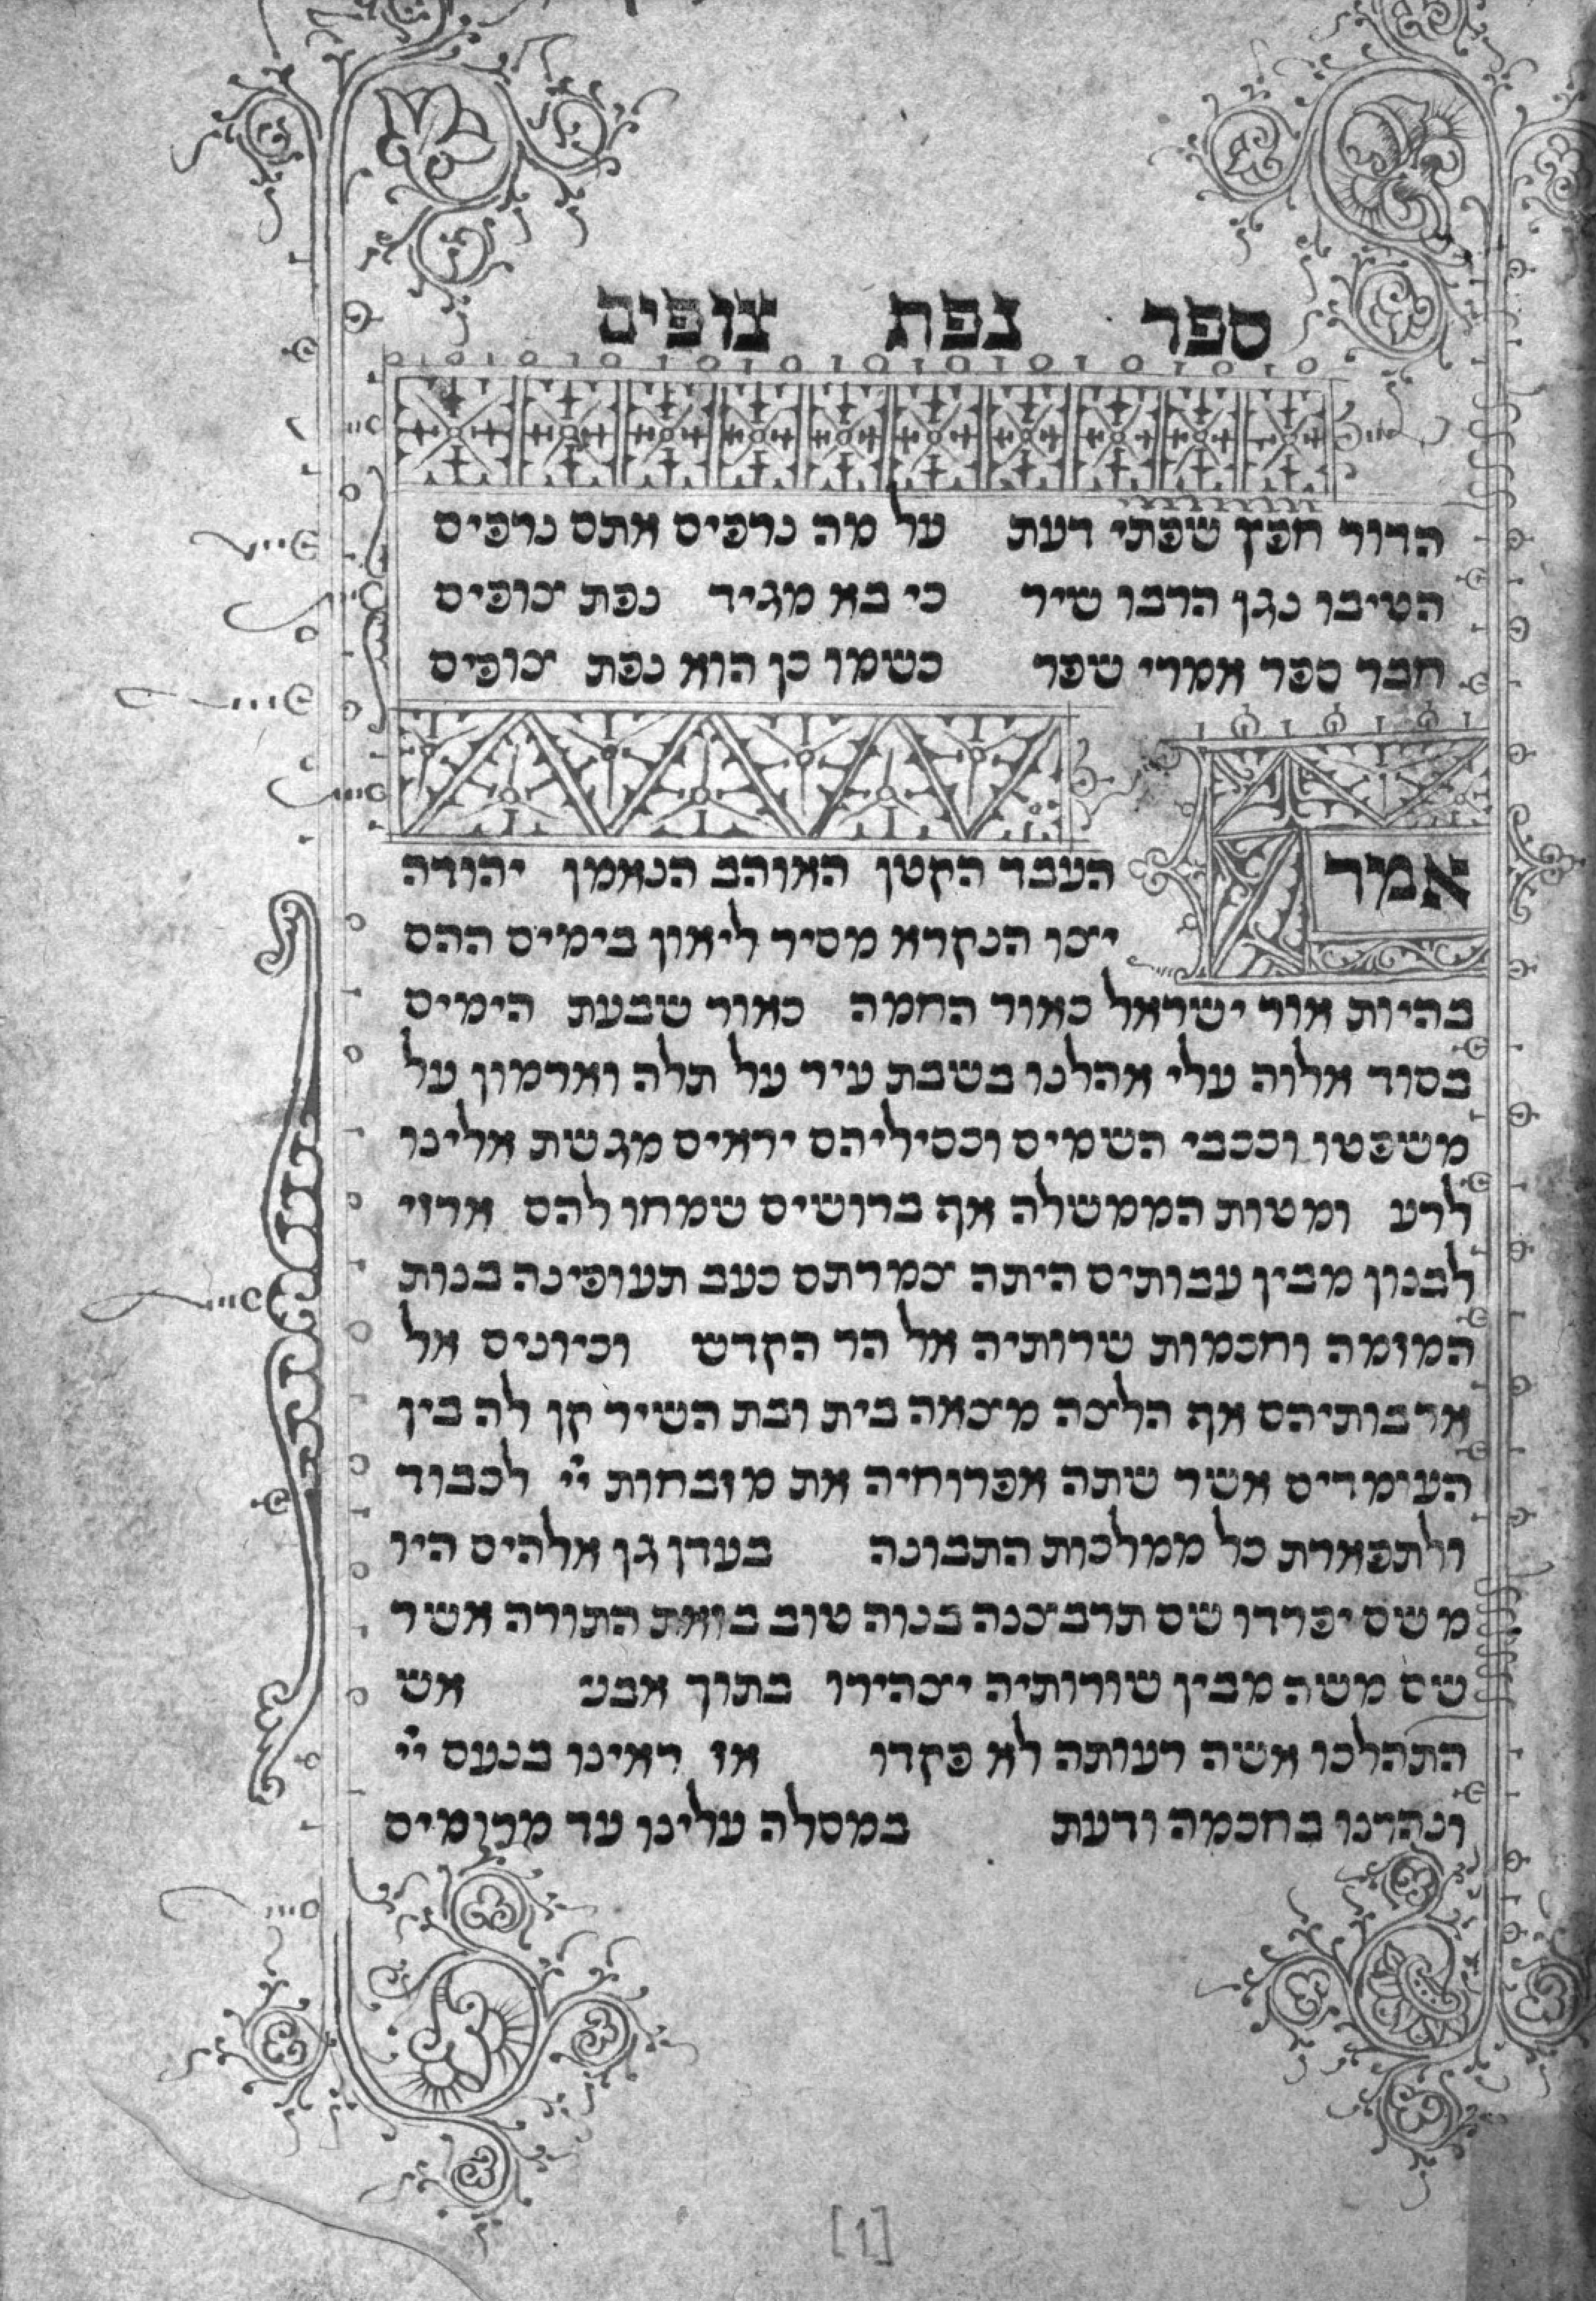 ספר נפת צופים
הדור חפץ שפתי דעת על מה נרפים אתם נרפים
הטיבו נגן הרבו שיר כי בא מגיד נפת צופים
חבר ספר אמרי שפר כשמו כן הוא נפת צופים
אמר העבד הקטן האוהב הנאמן יהודה
יצו הנקרא מסיר ליאון בימים ההם
בהיות אור ישראל כאור החמה כאור שבעת הימים
בסוד אלוה עלי אהלנו בשבת עיר על תלה וארמון על
משפטו וככבי השמים וכסיליהם יראים מגשת אלינו
לרע ומטות הממשלה אף ברושים שמחו להם ארזי
לבנון מבין עבותים היתה צמרתם כעב תעופינה בנות
המזמה וחכמות שרותיה אל הר הקדש וכיונים אל
ארבותיהם אף הלצה מצאה בית ובת השיר קן לה בין
העימרים אשר שתה אפרוחיה את מזבחות יי לכבוד
ולתפארת כל ממלכות התבונה בעדן גן אלהים היו
משם יפרדו שם תרבצנה בנוה טוב בזאת התורה אשר
שם משה מבין שורותיה יצהירו בתוך אבני אש
התהלכו אשה רעותה לא פקדו אז ראינו בנעם יי
ונהרנו בחכמה ודעת במסלה עלינו עד מרומים
[1]